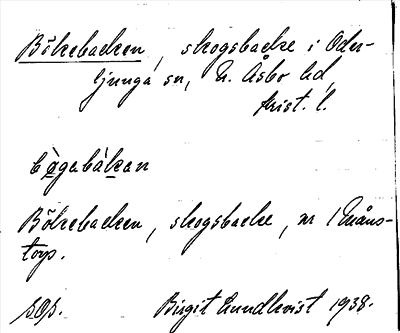 Bökebacken, skogsbacke i Oder-
ljunga sn, N. Åsbo hd,
Krist. l.
bøgabàkan
Bökebacken, skogsbacke, nr 1 Måns-
torp.
S.O.S. Birgit Lundkvist 1938.